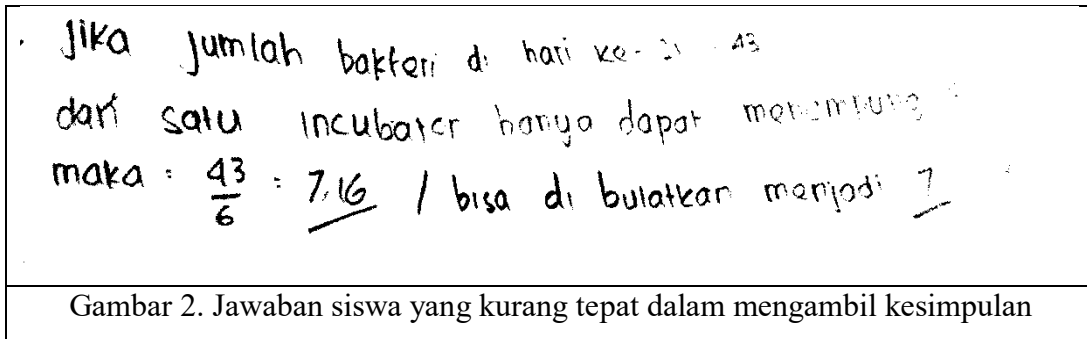 . Jika Jumlah bakteri di hari ke-21 43
dari satu Incubator hanya dapat menampung
maka : 43/6 = 7,16 / bisa di bulatkan menjadi 7
Gambar 2. Jawaban siswa yang kurang tepat dalam mengambil kesimpulan